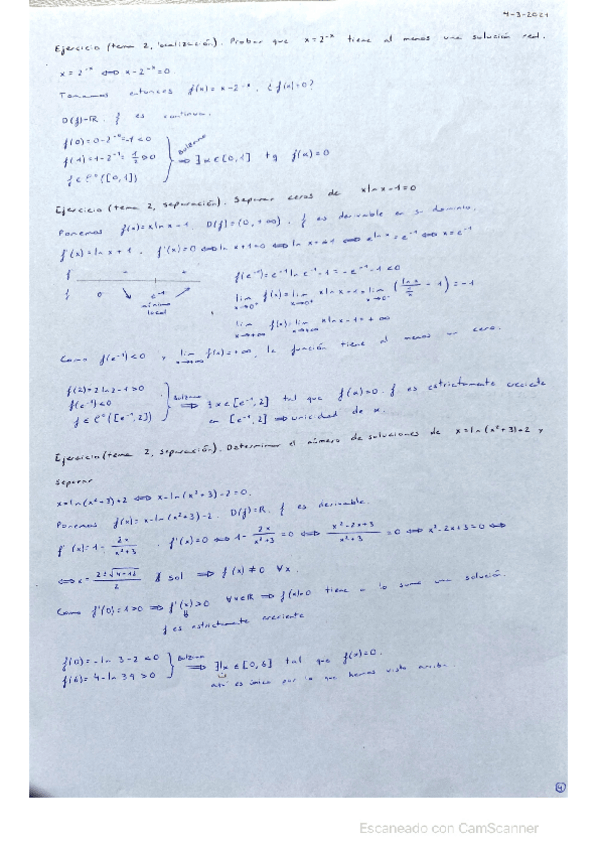 4-3-2021
Ejercicio (tema 2, localización). Probar que x=2^-x tiene al menos una solución real.
x=2^-x ⟺ x-2^-x=0
Tomamos entonces f(x)=x-2^-x. ¿f(x)=0?
D(f)=ℝ. f es continua.
f(0)=0-2^-0=-1<0
f(1)=1-2^-1=1/2>0
f∈C⁰([0,1])
Bolzano ⟹ ∃α∈[0,1] tq f(α)=0
Ejercicio (tema 2, separación). Separar ceros de xlnx-1=0
Ponemos f(x)=xlnx-1. D(f)=(0,+∞). f es derivable en su dominio.
f'(x)=lnx+1. f'(x)=0 ⟺ lnx+1=0 ⟺ lnx=-1 ⟺ e^lnx=e^-1 ⟺ x=e^-1
f' - +
f 0 ↘ e^-1 ↗
mínimo local
f(e^-1)=e^-1 ln e^-1-1=-e^-1-1<0
lim x→0⁺ f(x)=lim x→0⁺ xlnx-1=lim x→0⁺ (lnx/(1/x) -1)=-1
lim x→+∞ f(x)=lim x→+∞ xlnx-1=+∞
Como f(e^-1)<0 y lim x→+∞ f(x)=+∞, la función tiene al menos un cero.
f(2)=2ln2-1>0
f(e^-1)<0
f∈C⁰([e^-1,2])
Bolzano ⟹ ∃α∈[e^-1,2] tal que f(α)=0. f es estrictamente creciente
en [e^-1,2] ⟹ unicidad de α.
Ejercicio (tema 2, separación). Determinar el número de soluciones de x=ln(x²+3)+2 y
separar
x=ln(x²+3)+2 ⟺ x-ln(x²+3)-2=0.
Ponemos f(x)=x-ln(x²+3)-2. D(f)=ℝ. f es derivable.
f'(x)=1-2x/(x²+3). f'(x)=0 ⟺ 1-2x/(x²+3)=0 ⟺ (x²-2x+3)/(x²+3)=0 ⟺ x²-2x+3=0 ⟺
⟺ x=(2±√(4-12))/2 ∄ sol ⟹ f'(x)≠0 ∀x.
Como f'(0)=1>0 ⟹ f'(x)>0 ∀x∈ℝ ⟹ f(x)=0 tiene a lo sumo una solución.
f es estrictamente creciente
f(0)=-ln3-2<0
f(6)=4-ln39>0
Bolzano ⟹ ∃!α∈[0,6] tal que f(α)=0.
es único por lo que hemos visto arriba.
4
Escaneado con CamScanner